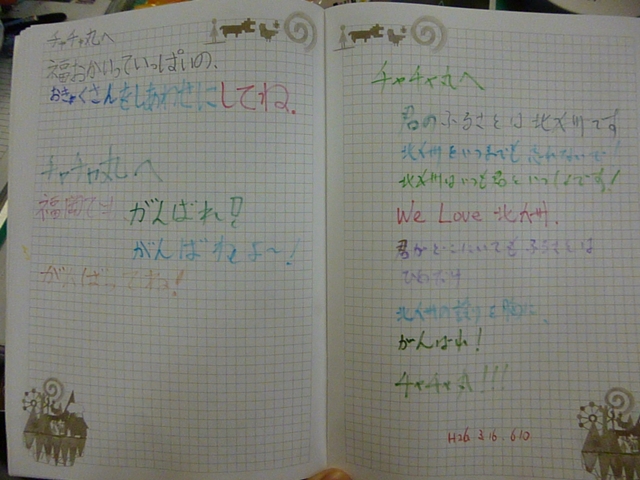 チャチャ丸へ
福おかいっていっぱいの、
おきゃくさんをしあわせにしてね。
チャチャ丸へ
福岡でも がんばれ!!
がんばれよ〜!
がんばってね!
チャチャ丸へ
君のふるさとは北九州です
北九州をいつまでも忘れないで!
北九州はいつも君といっしょです!
We Love 北九州.
君がどこにいてもふるさとは
ひとつだけ
北九州の誇りを胸に、
がんばれ!
チャチャ丸!!!
H26 3.16. 610